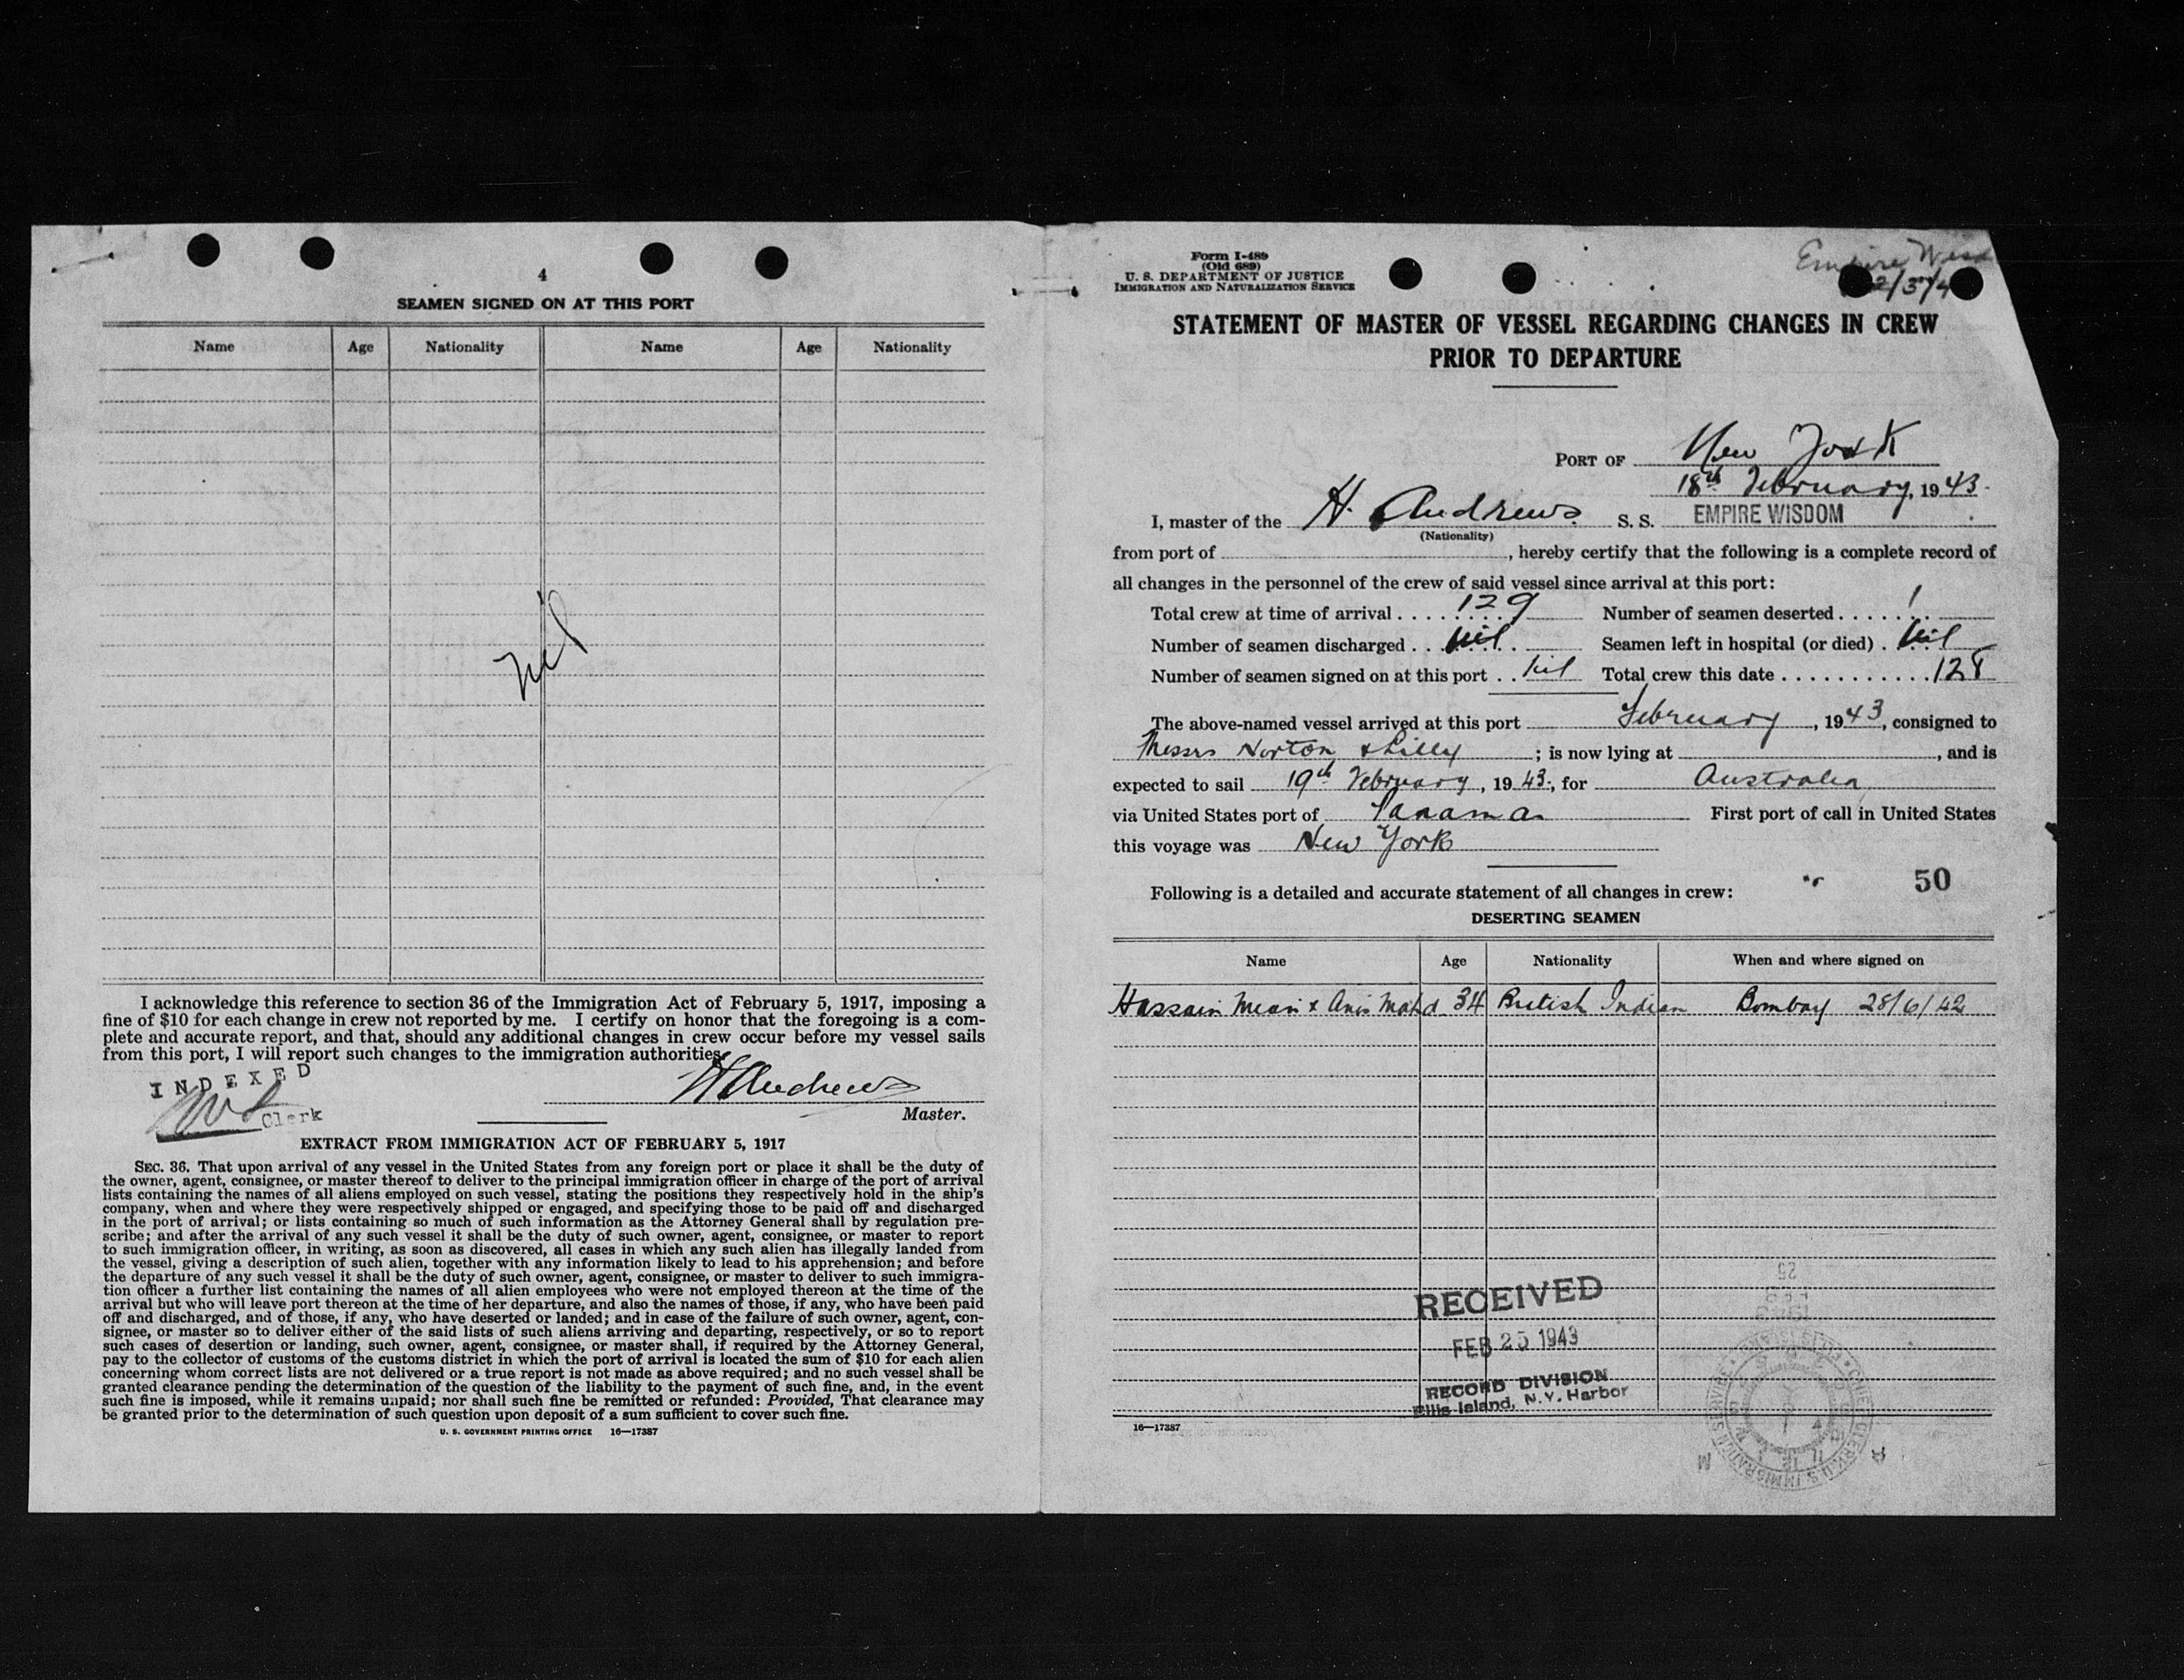 4
SEAMEN SIGNED ON AT THIS PORT
Name Age Nationality Name Age Nationality
Nil
I acknowledge this reference to section 36 of the Immigration Act of February 5, 1917, imposing a
fine of $10 for each change in crew not reported by me. I certify on honor that the foregoing is a com-
plete and accurate report, and that, should any additional changes in crew occur before my vessel sails
from this port, I will report such changes to the immigration authorities.
INDEXED
Clerk
H Andrews
Master.
EXTRACT FROM IMMIGRATION ACT OF FEBRUARY 5, 1917
SEC. 36. That upon arrival of any vessel in the United States from any foreign port or place it shall be the duty of
the owner, agent, consignee, or master thereof to deliver to the principal immigration officer in charge of the port of arrival
lists containing the names of all aliens employed on such vessel, stating the positions they respectively hold in the ship's
company, when and where they were respectively shipped or engaged, and specifying those to be paid off and discharged
in the port of arrival; or lists containing so much of such information as the Attorney General shall by regulation pre-
scribe; and after the arrival of any such vessel it shall be the duty of such owner, agent, consignee, or master to report
to such immigration officer, in writing, as soon as discovered, all cases in which any such alien has illegally landed from
the vessel, giving a description of such alien, together with any information likely to lead to his apprehension; and before
the departure of any such vessel it shall be the duty of such owner, agent, consignee, or master to deliver to such immigra-
tion officer a further list containing the names of all alien employees who were not employed thereon at the time of the
arrival but who will leave port thereon at the time of her departure, and also the names of those, if any, who have been paid
off and discharged, and of those, if any, who have deserted or landed; and in case of the failure of such owner, agent, con-
signee, or master so to deliver either of the said lists of such aliens arriving and departing, respectively, or so to report
such cases of desertion or landing, such owner, agent, consignee, or master shall, if required by the Attorney General,
pay to the collector of customs of the customs district in which the port of arrival is located the sum of $10 for each alien
concerning whom correct lists are not delivered or a true report is not made as above required; and no such vessel shall be
granted clearance pending the determination of the question of the liability to the payment of such fine, and, in the event
such fine is imposed, while it remains unpaid; nor shall such fine be remitted or refunded: Provided, That clearance may
be granted prior to the determination of such question upon deposit of a sum sufficient to cover such fine.
U. S. GOVERNMENT PRINTING OFFICE 16—17387
Form I-489
(Old 689)
U. S. DEPARTMENT OF JUSTICE
IMMIGRATION AND NATURALIZATION SERVICE
Empire
STATEMENT OF MASTER OF VESSEL REGARDING CHANGES IN CREW
PRIOR TO DEPARTURE
PORT OF New York
18th February, 1943.
I, master of the H. Andrews S. S. EMPIRE WISDOM
(Nationality)
from port of , hereby certify that the following is a complete record of
all changes in the personnel of the crew of said vessel since arrival at this port:
Total crew at time of arrival 129 Number of seamen deserted 1
Number of seamen discharged Nil Seamen left in hospital (or died) Nil
Number of seamen signed on at this port Nil Total crew this date 128
The above-named vessel arrived at this port February, 1943, consigned to
Messrs Norton & Lilly ; is now lying at , and is
expected to sail 19th February, 1943, for Australia
via United States port of Panama First port of call in United States
this voyage was New York
Following is a detailed and accurate statement of all changes in crew: 50
DESERTING SEAMEN
Name Age Nationality When and where signed on
Hassain Mean x Anis Mohd 34 British Indian Bombay 28/6/42
RECEIVED
FEB 25 1943
RECORD DIVISION
Ellis Island, N.Y. Harbor
16—17387